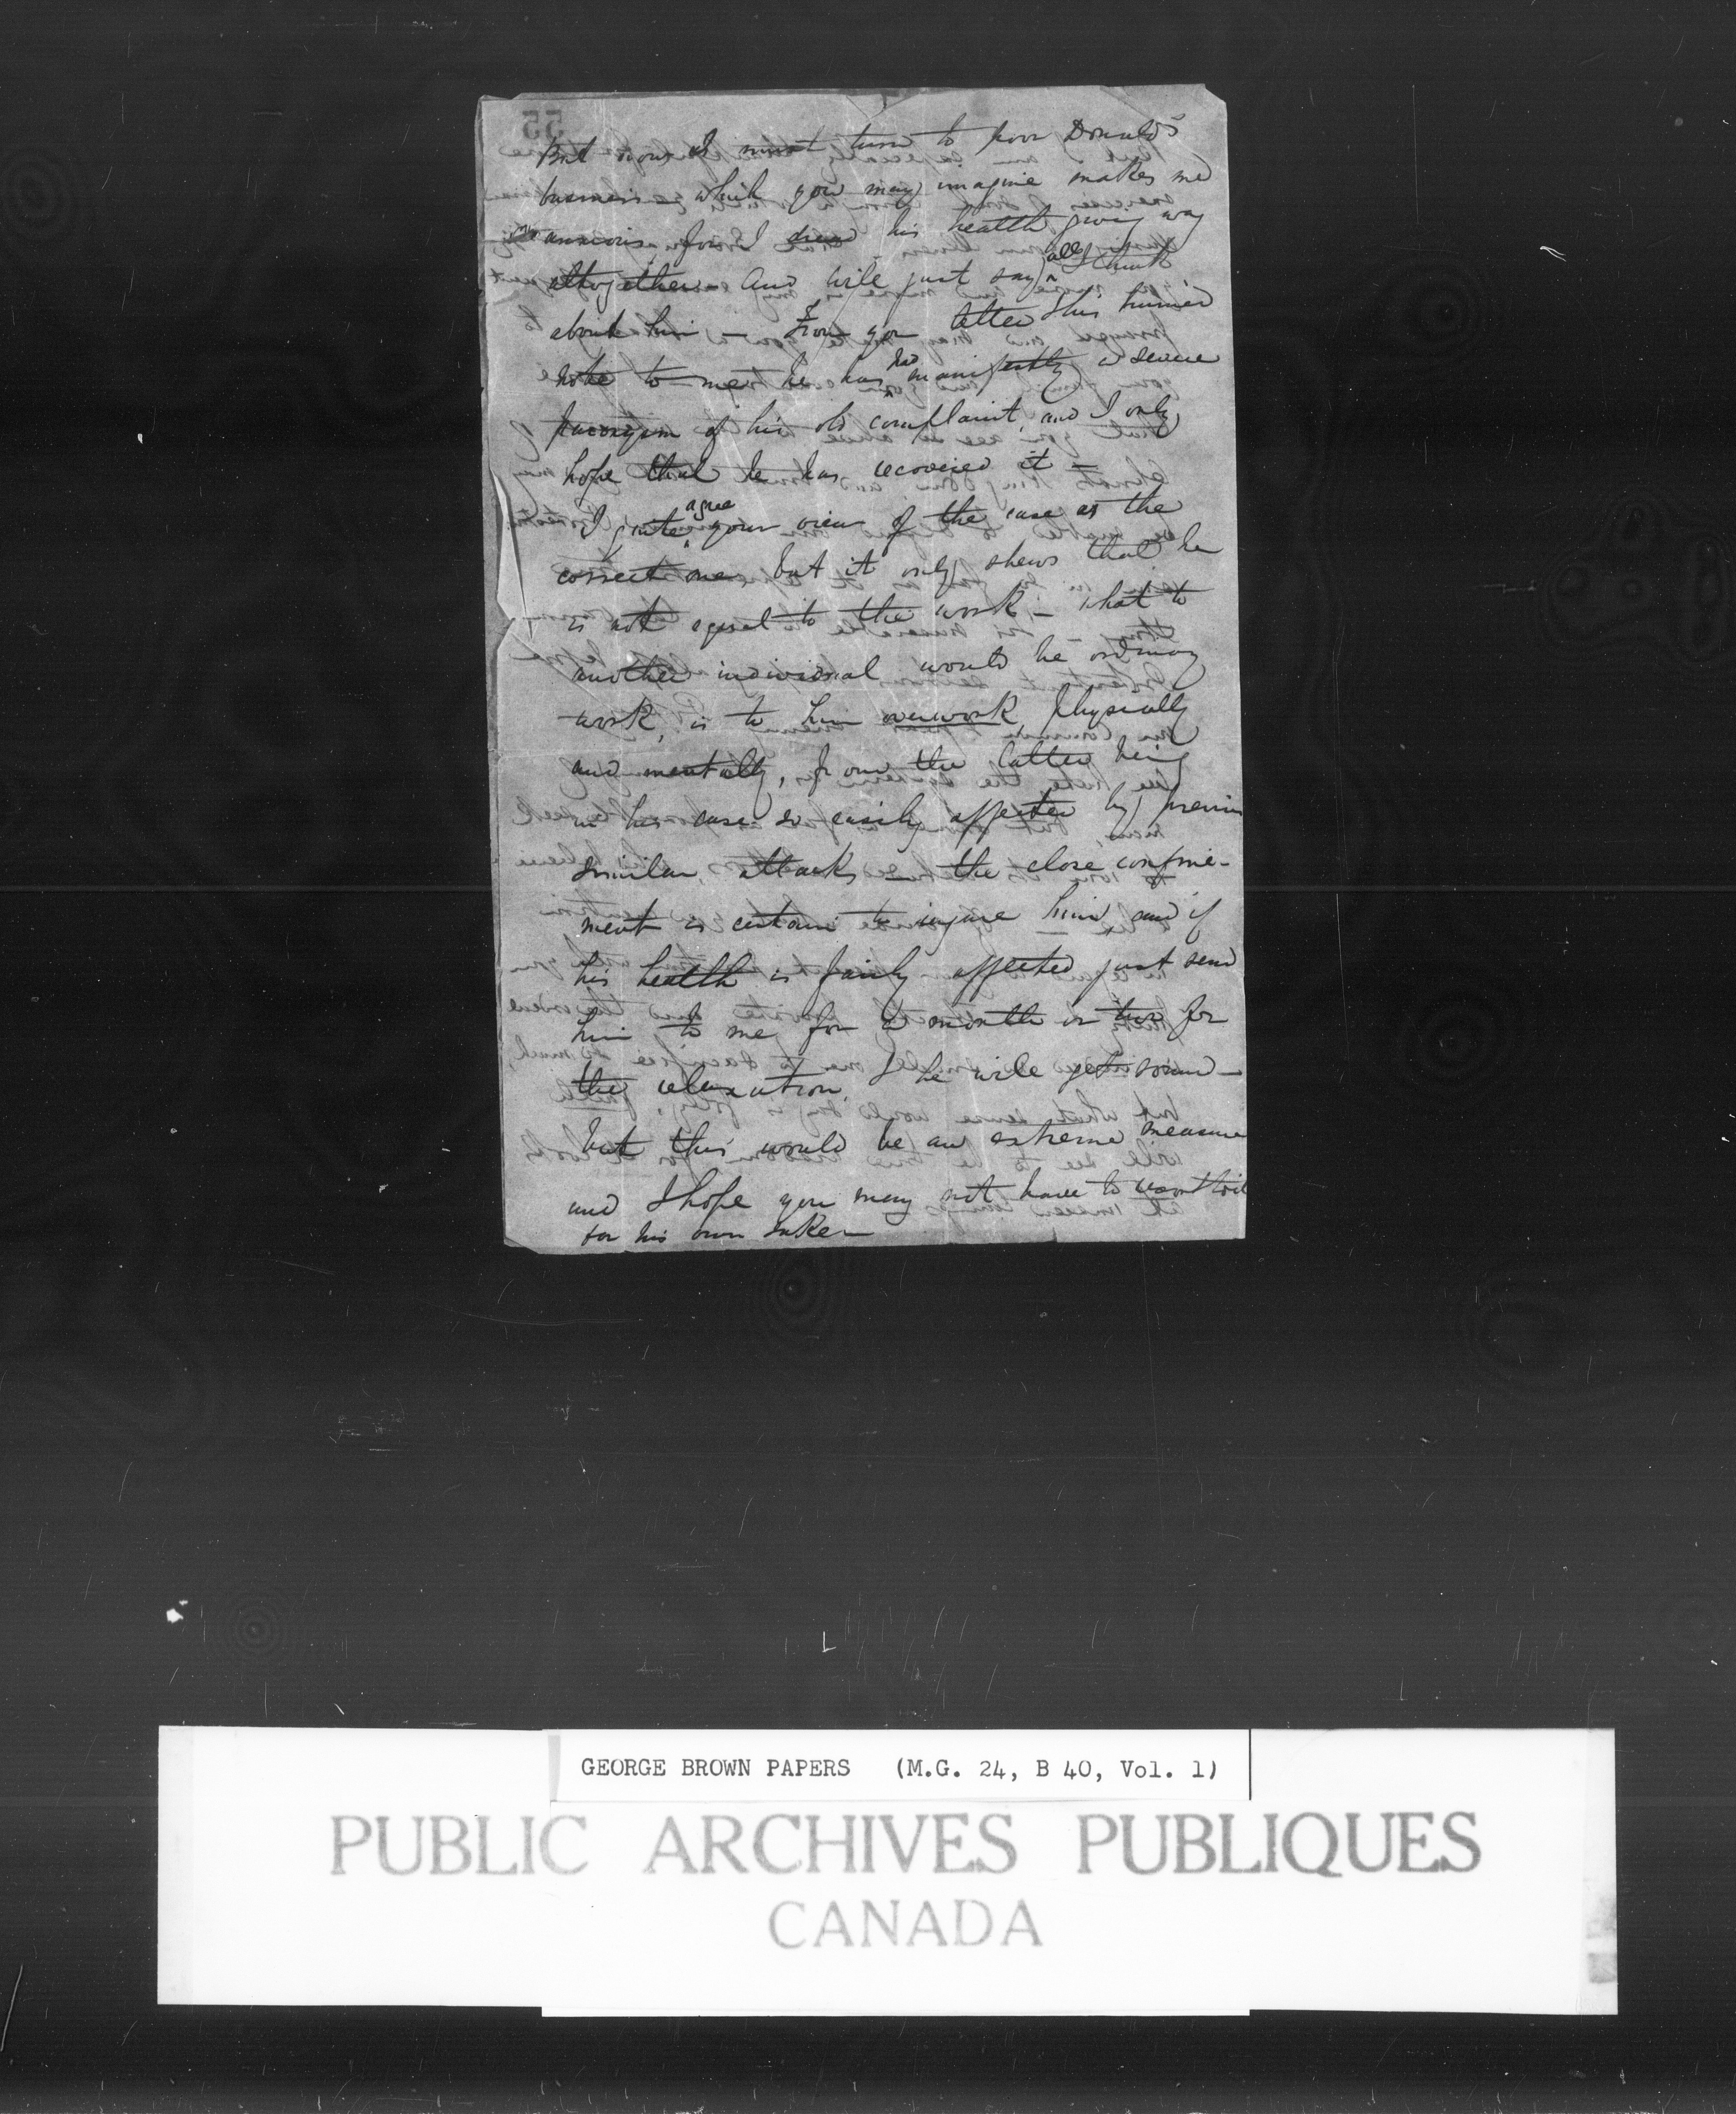 55
But now I must turn to poor Donald's
business which you may imagine makes me
anxious, for I dread his health giving way
altogether - and will just say all I think
about him - From your letter & his hurried
note to me he has had manifestly a severe
paroxysm of his old complaint, and I only
hope that he has recovered it -
I quite agree your view of the case as the
correct one, but it only shews that he
is not equal to the work - what to
another individual would be ordinary
work, is to him overwork physically
and mentally, from the latter being
in his case so easily affected by previous
similar attacks - the close confine-
ment is certain to injure him, and if
his health is fairly affected just send
him to me for a month or two for
the relaxation he will get some -
but this would be an extreme measure
and I hope you may not have to
for his own sake -
GEORGE BROWN PAPERS (M.G. 24, B 40, Vol. 1)
PUBLIC ARCHIVES PUBLIQUES
CANADA